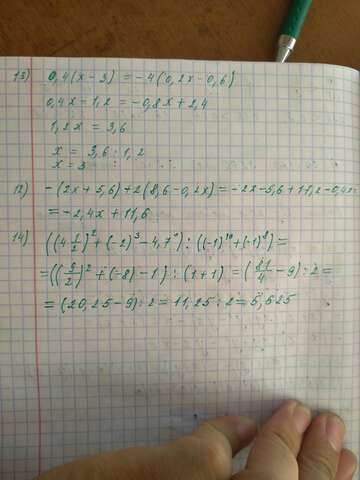 13) 0,4(x-3) = -4(0,2x-0,6)
0,4x-1,2 = -0,8x+2,4
1,2x = 3,6
x = 3,6 : 1,2
x = 3
12) -(2x+5,6)+2(8,6-0,2x)=-2x-5,6+17,2-0,4x=
= -2,4x + 11,6
14) ((4 1/2)² + (-2)³ - 4,7⁰) : ((-1)¹⁰ + (-1)⁸) =
= ((9/2)² + (-8) - 1) : (1+1) = (81/4 - 9) : 2 =
= (20,25-9) : 2 = 11,25 : 2 = 5,625